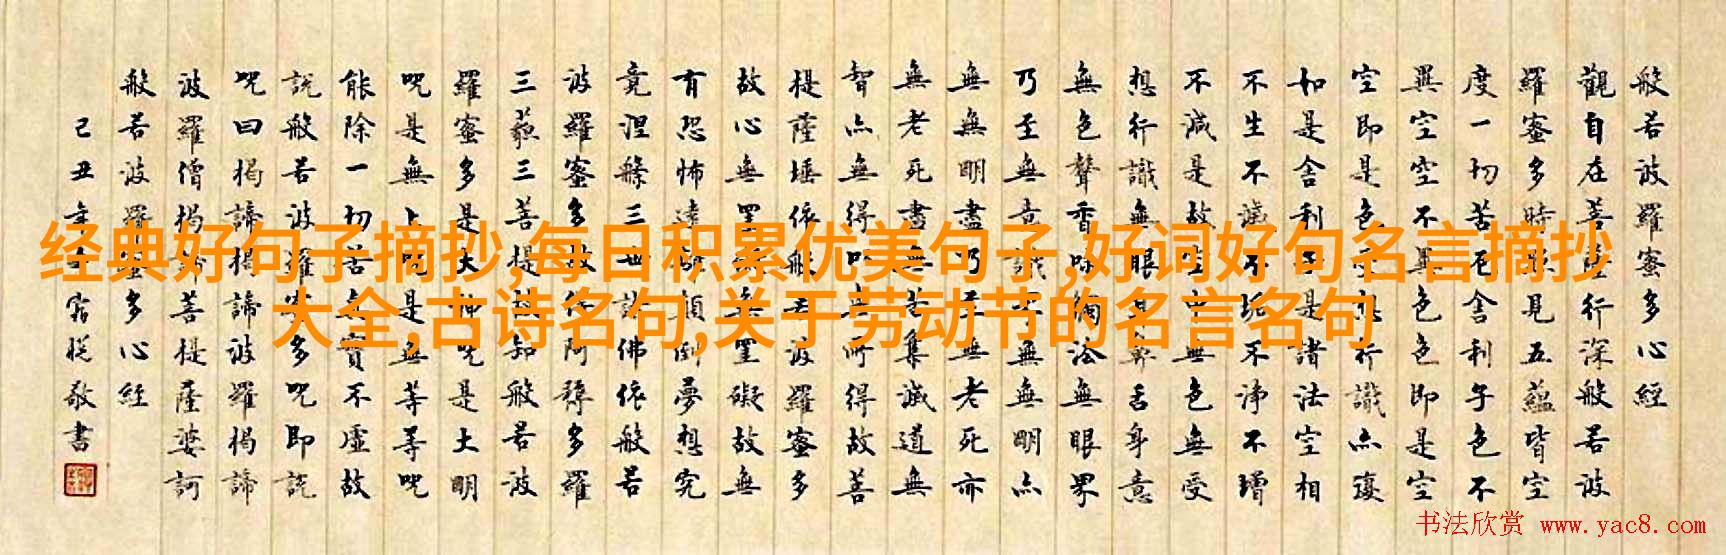 般若波羅蜜多心經
觀自在菩薩行深般若波
羅蜜多時照見五蘊皆空
度一切苦厄舍利子色不
異空空不異色色即是空
空即是色受想行識亦復
如是舍利子是諸法空相
不生不滅不垢不淨不增
不減是故空中無色無受
想行識無眼耳鼻舌身意
無色聲香味觸法無眼界
乃至無意識界無無明亦
無無明盡乃至無老死亦
無老死盡無苦集滅道無
智亦無得以無所得故菩
提薩埵依般若波羅蜜多
故心無罣礙無罣礙故無
有恐怖遠離顛倒夢想究
竟涅槃三世諸佛依般若
波羅蜜多故得阿耨多羅
三藐三菩提故知般若波
羅蜜多是大神咒是大明
咒是無上咒是無等等咒
能除一切苦真實不虛故
說般若波羅蜜多咒即說
咒曰揭諦揭諦波羅揭諦
波羅僧揭諦菩提薩婆訶
般若波羅蜜多心經
己丑年敬書
经典好句子摘抄,每日积累优美句子,好词好句名言摘抄
大全,古诗名句,关于劳动节的名言名句
书法欣赏 www.yac8.com